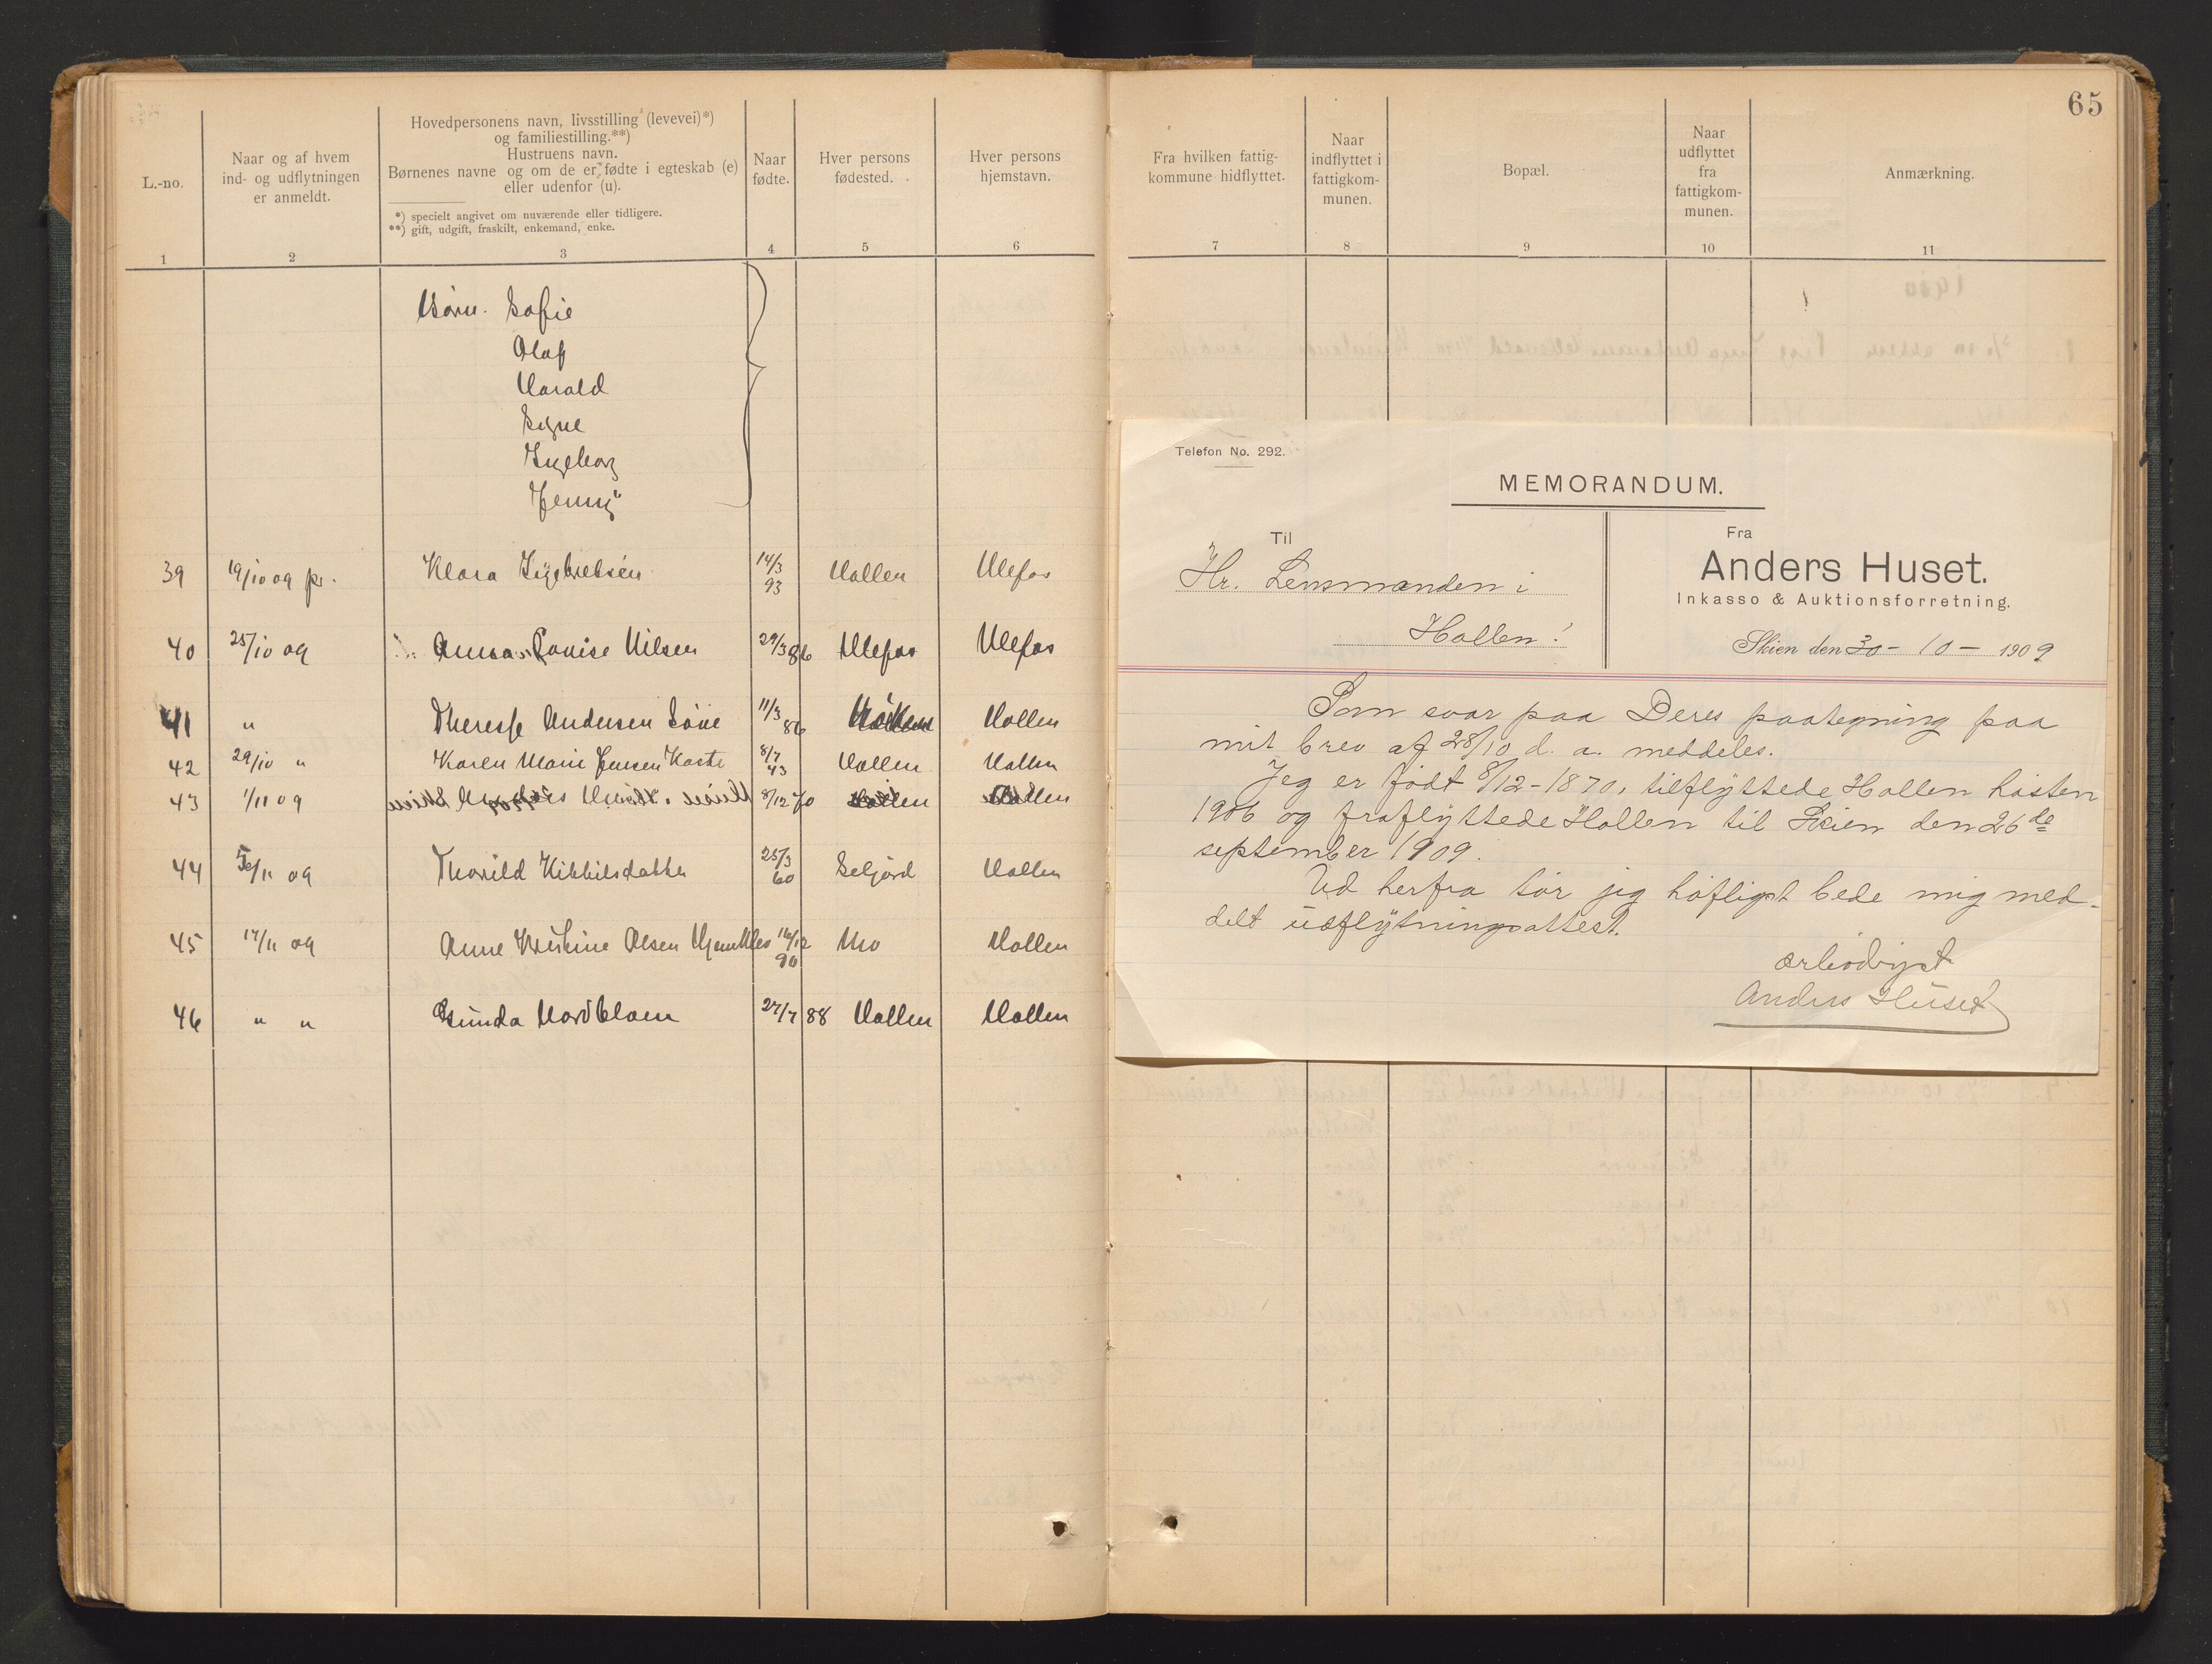 L.-no.
Naar og af hvem
ind- og udflytningen
er anmeldt.
Hovedpersonens navn, livsstilling (levevei)*)
og familiestilling.**)
Hustruens navn.
Børnenes navne og om de er fødte i egteskab (e)
eller udenfor (u).
*) specielt angivet om nuværende eller tidligere.
**) gift, udgift, fraskilt, enkemand, enke.
Naar
fødte.
Hver persons
fødested.
Hver persons
hjemstavn.
1 2 3 4 5 6
Børn. Sofie
Olaf
Harald
Signe
Ingeborg
Jenny
39 19/10 09 pr. Klara Ingebretsen 14/3 93 Hollen Ulefos
40 25/10 09 Anna Lovise Nilsen 29/3 86 Ulefos Ulefos
41 " Therese Andersen Søve 11/3 86 Hollen
42 29/10 " Karen Marie Jensen Kaste 8/7 43 Hollen Hollen
43 1/11 09 Anders Huset 8/12 70 Hollen Hollen
44 5/11 09 Thorild Kittilsdatter 25/3 60 Seljord Hollen
45 17/11 09 Anne Kristine Olsen 16/12 90 Mo Hollen
46 " " Gunda Nordblom 27/7 88 Hollen Hollen
65
Fra hvilken fattig-
kommune hidflyttet.
Naar
indflyttet i
fattigkom-
munen.
Bopæl.
Naar
udflyttet
fra
fattigkom-
munen.
Anmærkning.
7 8 9 10 11
Telefon No. 292.
MEMORANDUM.
Til
Hr. Lensmanden i
Hollen!
Fra
Anders Huset.
Inkasso & Auktionsforretning.
Skien den 30 - 10 - 1909
Som svar paa Deres paategning paa
mit brev af 28/10 d. a. meddeles.
Jeg er født 8/12-1870, tilflyttede Hollen høsten
1906 og fraflyttede Hollen til Skien den 26de
september 1909.
Ud herfra tør jeg høfligst bede mig med-
delt udflytningsattest.
ærbødigst
Anders Huset